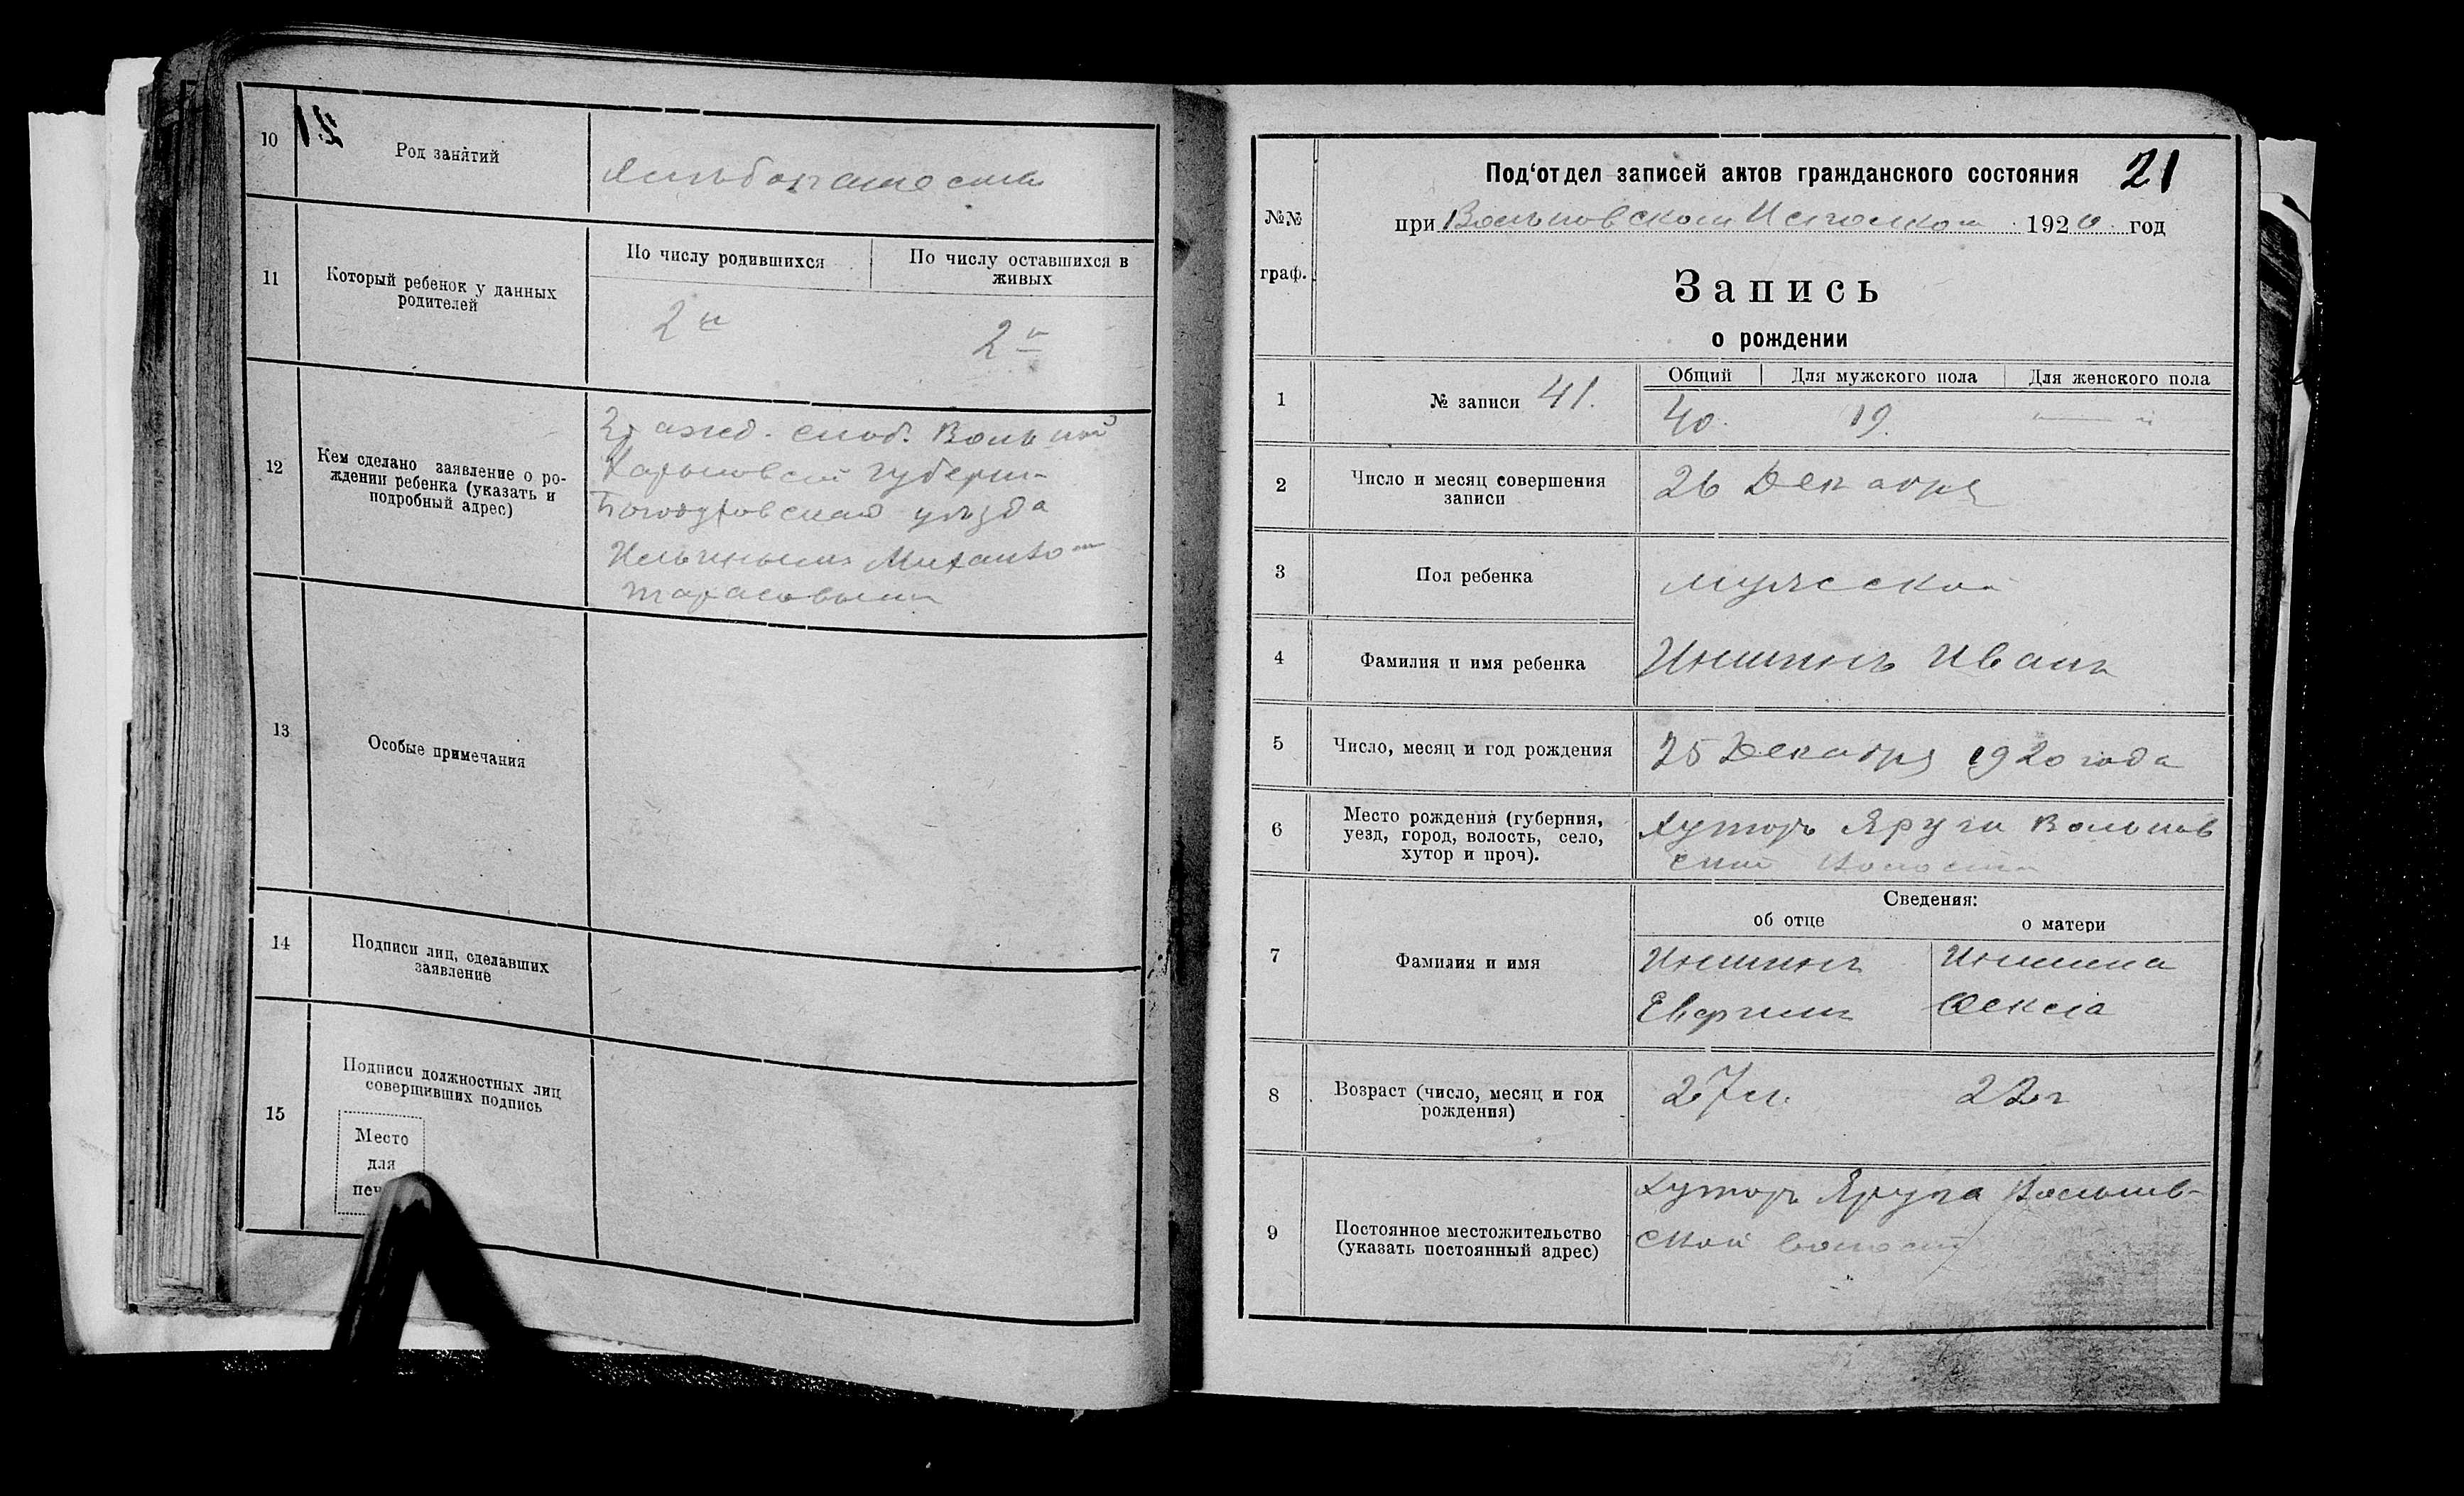 10
Род занятий
Хлебопашество
11
Который ребенок у данных
родителей
По числу родившихся
По числу оставшихся в
живых
2й
2й
12
Кем сделано заявление о ро-
ждении ребенка (указать и
подробный адрес)
гражд. слоб. Вольной
Харьковской губерни
Богодуховскаго уезда
Михаило
Тарасовым
13
Особые примечания
14
Подписи лиц, сделавших
заявление
15
Подписи должностных лиц
совершивших подпись
Место
для
печ
№№
граф.
Под‘отдел записей актов гражданского состояния 21
при Вольновском Исполком 1920 год
Запись
о рождении
1
№ записи 41.
Общий
Для мужского пола
Для женского пола
40.
19.
—
2
Число и месяц совершения
записи
26 Декабря
3
Пол ребенка
мужской
4
Фамилия и имя ребенка
Иншинъ Иванъ
5
Число, месяц и год рождения
25 Декабря 1920 года
6
Место рождения (губерния,
уезд, город, волость, село,
хутор и проч).
Хуторъ Яруги Вольнов
ской Волости
Сведения:
об отце
о матери
7
Фамилия и имя
Иншинъ
Иншина
8
Возраст (число, месяц и год
рождения)
27 л.
22 г
9
Постоянное местожительство
(указать постоянный адрес)
Хуторъ Яруга Вольнов-
ской волости